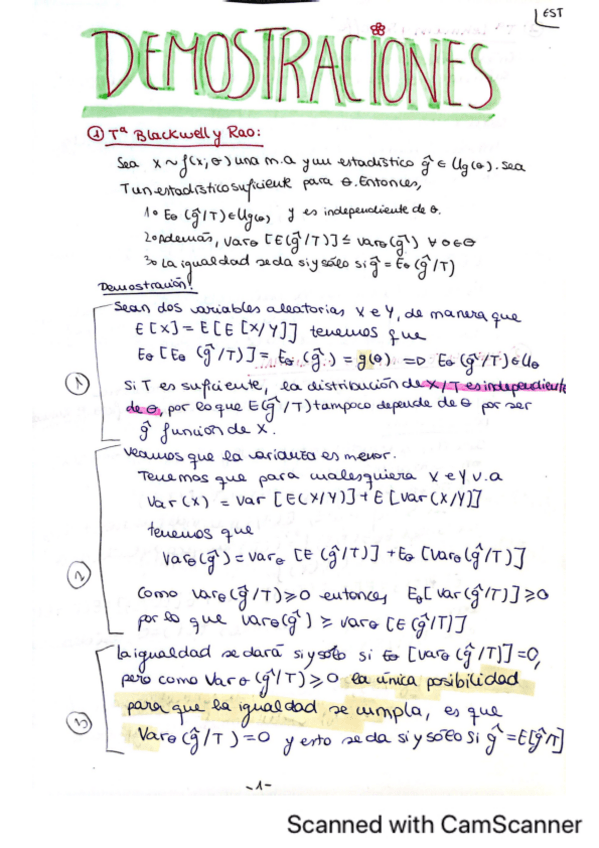 EST
DEMOSTRACIONES
① Tª Blackwell y Rao:
Sea x ~ f(x;θ) una m.a y un estadístico ĝ ∈ Ug(θ). Sea
T un estadístico suficiente para θ. Entonces,
1º Eθ (ĝ/T) ∈ Ug(θ) y es independiente de θ.
2º Además, Varθ [E(ĝ/T)] ≤ Varθ(ĝ) ∀ θ ∈ Θ
3º La igualdad se da si y sólo si ĝ = Eθ (ĝ/T)
Demostración:
Sean dos variables aleatorias X e Y, de manera que
E[X] = E[E[X/Y]] tenemos que
Eθ [Eθ (ĝ/T)] = Eθ (ĝ) = g(θ) => Eθ (ĝ/T) ∈ Uθ
① Si T es suficiente, la distribución de X/T es independiente
de θ, por lo que E(ĝ/T) tampoco depende de θ por ser
ĝ función de X.
Veamos que la varianza es menor.
Tenemos que para cualesquiera X e Y v.a
Var(X) = Var [E(X/Y)] + E [Var(X/Y)]
tenemos que
② Varθ(ĝ) = Varθ [E (ĝ/T)] + Eθ [Varθ(ĝ/T)]
Como Varθ(ĝ/T) ⩾ 0 entonces Eθ[Var(ĝ/T)] ⩾ 0
por lo que Varθ(ĝ) ⩾ Varθ [E(ĝ/T)]
La igualdad se dará si y sólo si Eθ [Varθ (ĝ/T)] = 0,
pero como Varθ(ĝ/T) ⩾ 0 la única posibilidad
③ para que la igualdad se cumpla, es que
Varθ (ĝ/T) = 0 y esto se da si y sólo si ĝ = E[ĝ/T]
-1-
Scanned with CamScanner